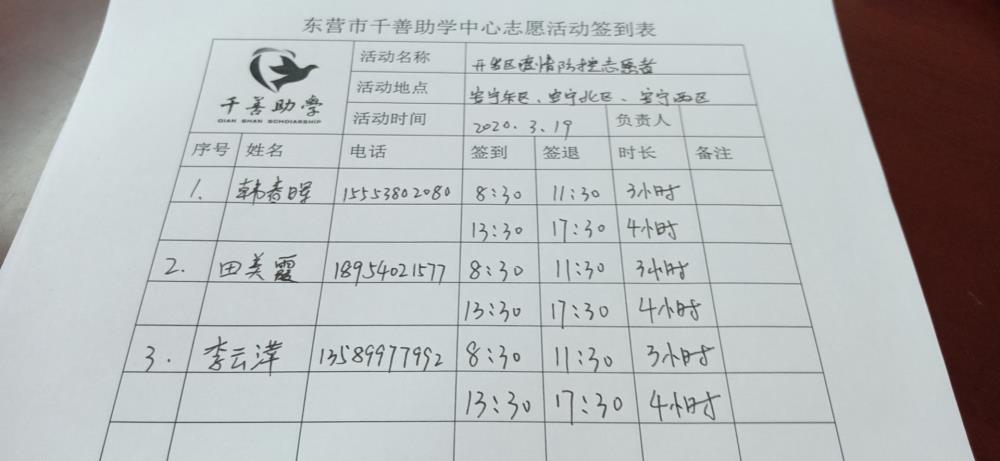 东营市千善助学中心志愿活动签到表
千善助学
QIAN SHAN SCHOLARSHIP
活动名称 开发区疫情防控志愿者
活动地点 安宁东区、安宁北区、安宁西区
活动时间 2020.3.19 负责人
序号 姓名 电话 签到 签退 时长 备注
1. 韩春晖 15553802080 8:30 11:30 3小时
13:30 17:30 4小时
2. 田美霞 18954021577 8:30 11:30 3小时
13:30 17:30 4小时
3. 李云萍 13589977992 8:30 11:30 3小时
13:30 17:30 4小时